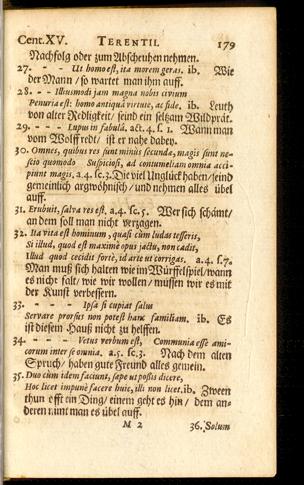 Cent. XV. TERENTII. 179
Nachfolg oder zum Abscheuhen nehmen.
27. - - Ut homo est, ita morem geras. ib. Wie
der Mann / so wartet man ihm auff.
28. - - Illusmodi jam magna nobis civium
Penuria est: homo antiquâ virtute, ac fide. ib. Leuth
von alter Redligkeit / seind ein seltzam Wildprät.
29. - - - Lupus in fabulâ. act. 4. s. 1. Wann man
vom Wolff redt / ist er nahe dabey.
30. Omnes, quibus res sunt minùs secundæ, magis sunt ne-
scio quomodo Suspiciosi, ad contumeliam omnia acci-
piunt magis. a.4. sc.3. Die viel Unglück haben / seind
gemeinlich argwöhnisch / und nehmen alles übel
auff.
31. Erubuit, salva res est. a.4. sc.5. Wer sich schämt /
an dem soll man nicht verzagen.
32. Ita vita est hominum, quasi cùm ludas tesseris,
Si illud, quod est maximè opus jactu, non cadit,
Illud quod cecidit fortè, id arte ut corrigas. a.4. s.7.
Man muß sich halten wie im Würffelspiel / wann
es nicht falt / wie wir wollen / müssen wir es mit
der Kunst verbessern.
33. - - - Ipsa si cupiat salus
Servare prorsus non potest hanc familiam. ib. Es
ist diesem Hauß nicht zu helffen.
34. - - - Vetus verbum est, Communia esse ami-
corum inter se omnia. a.5. sc.3. Nach dem alten
Spruch / haben gute Freund alles gemein.
35. Duo cùm idem faciunt, sæpe ut possis dicere,
Hoc licet impunè facere huic, illi non licet. ib. Zween
thun offt ein Ding / einem geht es hin / dem an-
deren nimt man es übel auff.
M 2 36. Solum